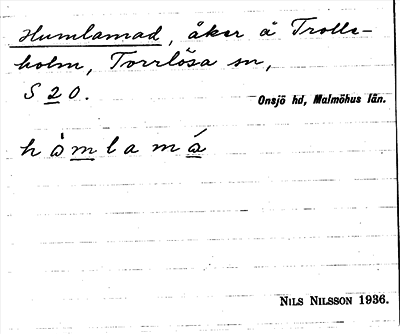 Humlamad, åker å Trolle-
holm, Torrlösa sn,
S 2 0.
Onsjö hd, Malmöhus län.
h ò m l a m á
NILS NILSSON 1936.